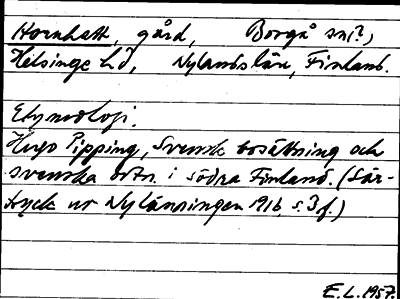 Hornhatt, gård, Borgå sn(?),
Helsinge hd, Nylands län, Finland.
Etymologi.
Hugo Pipping, Svensk bosättning och
svenska ortn. i södra Finland. (Sär-
tryck ur Nylänningen 1916 s. 3 f.)
E.L. 1957.